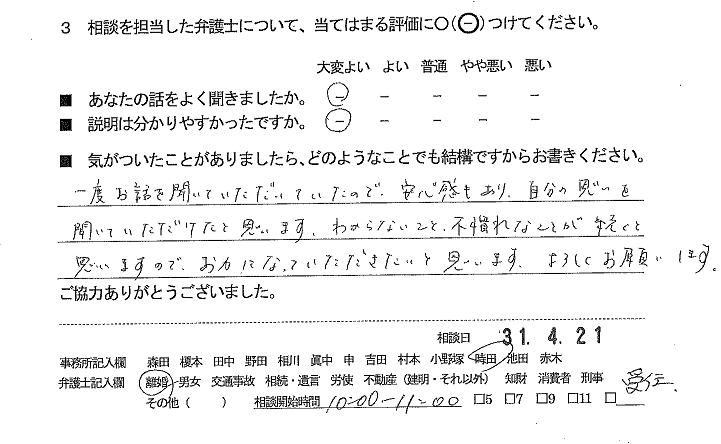 3 相談を担当した弁護士について、当てはまる評価に○(⊖)つけてください。
大変よい よい 普通 やや悪い 悪い
■ あなたの話をよく聞きましたか。 － － － － －
■ 説明は分かりやすかったですか。 － － － － －
■ 気がついたことがありましたら、どのようなことでも結構ですからお書きください。
一度お話を聞いていただいていたので、安心感もあり、自分の思いを
聞いていただけたと思います。わからないこと、不慣れなことが続くと
思いますので、お力になっていただきたいと思います。よろしくお願いします。
ご協力ありがとうございました。
相談日 31. 4. 21
事務所記入欄 森田 榎本 田中 野田 相川 眞中 申 吉田 村本 小野塚 時田 池田 赤木
弁護士記入欄 離婚・男女 交通事故 相続・遺言 労使 不動産（建明・それ以外） 知財 消費者 刑事 受任
その他（ ） 相談開始時間 10:00-11:00 □5 □7 □9 □11 □